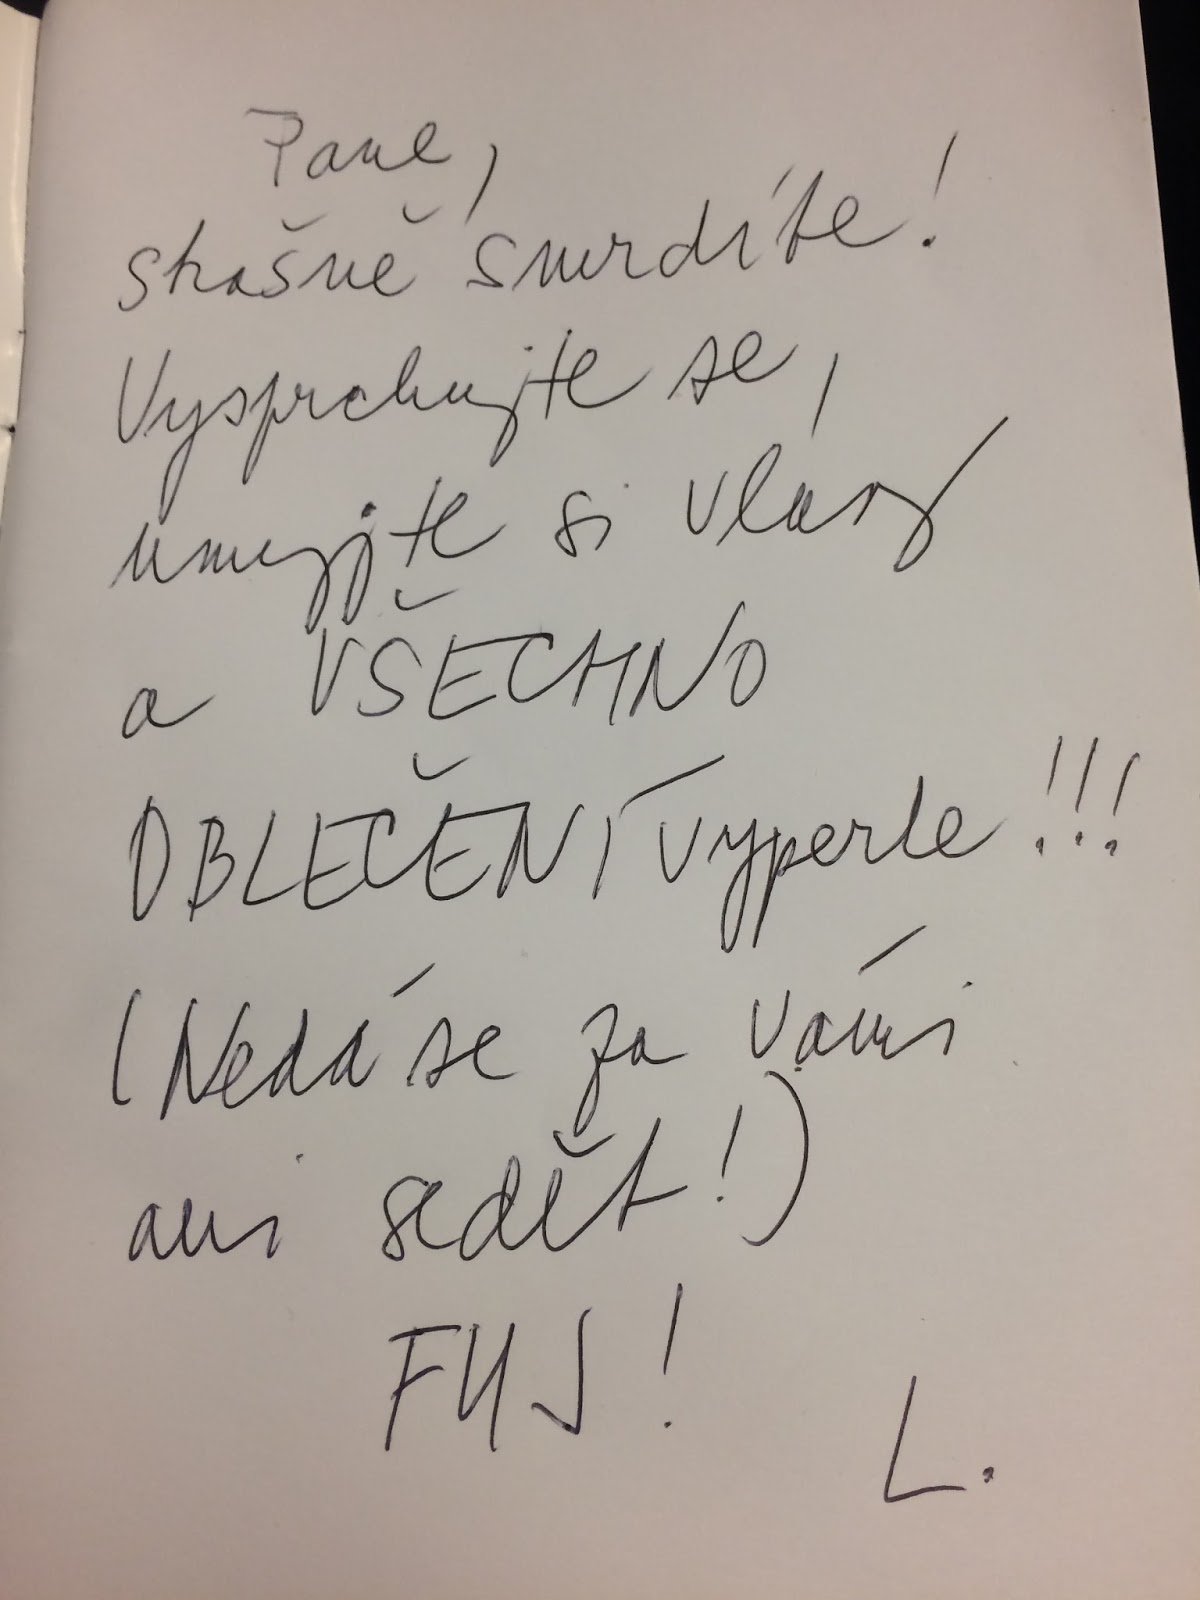 Pane,
strašně smrdíte!
Vysprchujte se,
umyjte si vlasy
a VŠECHNO
OBLEČENÍ vyperte!!!
(Nedá se za vámi
ani sedět!)
FUJ!
L.